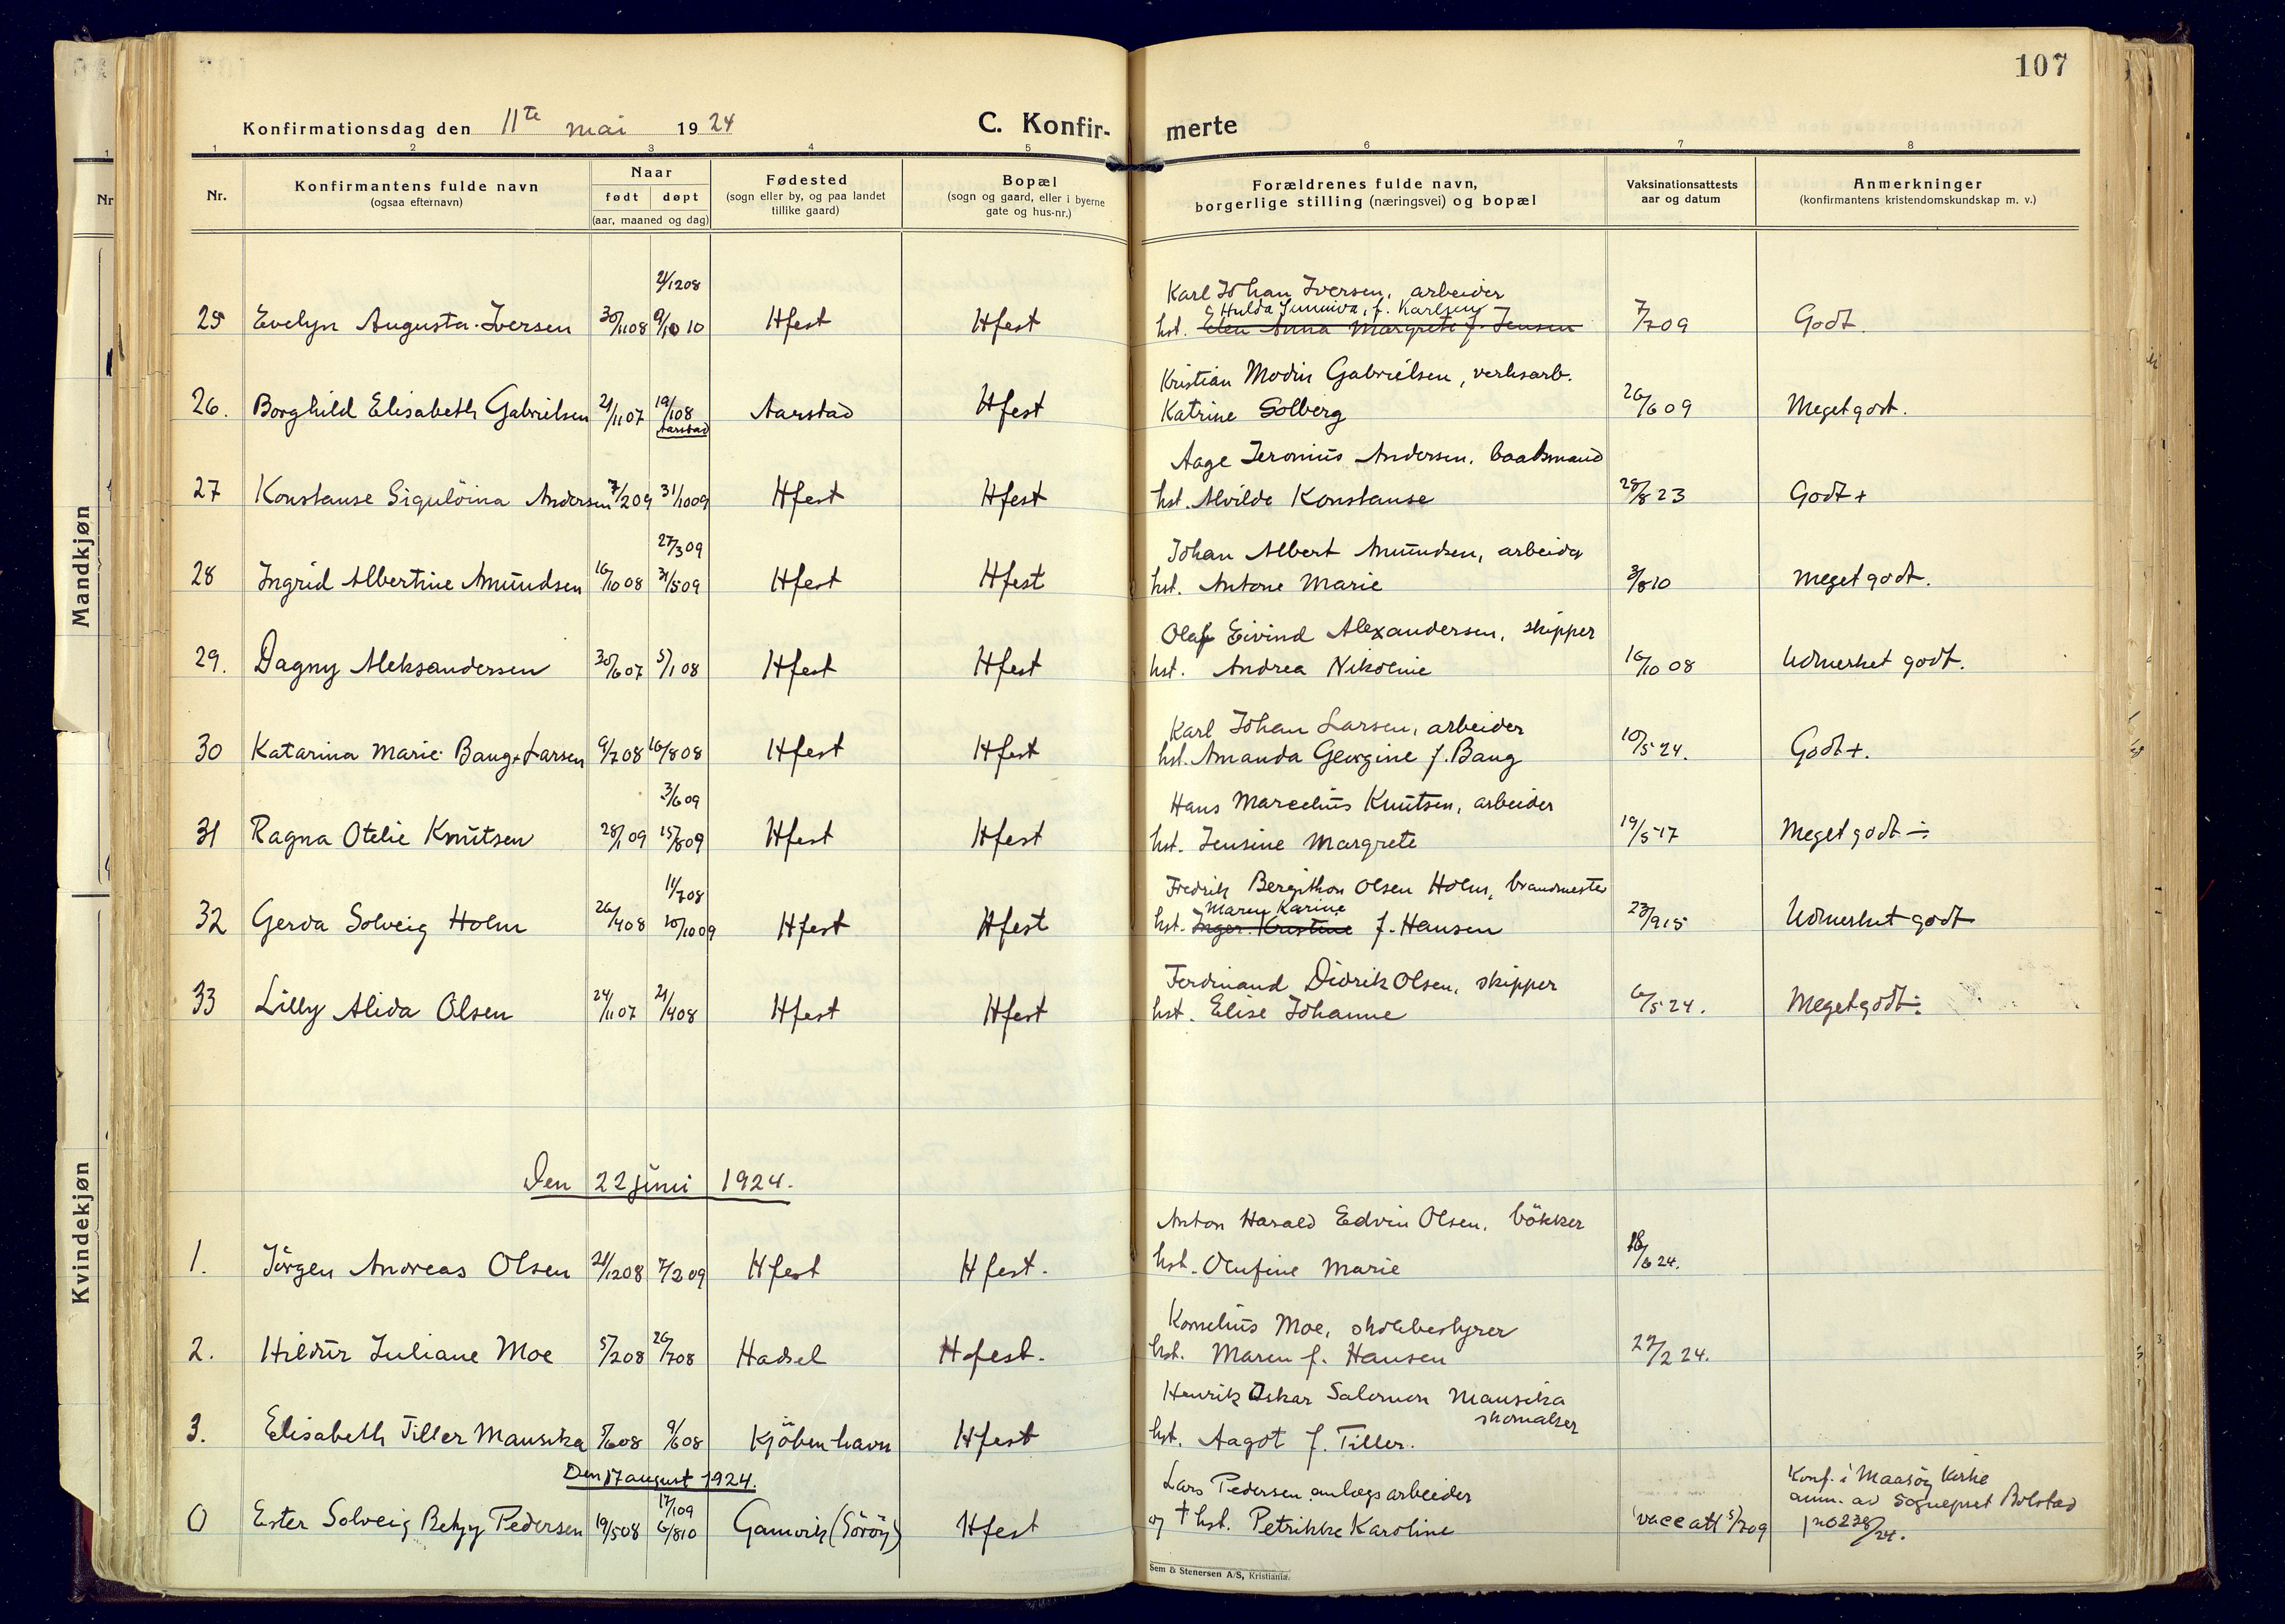 107
Konfirmationsdag den 11te mai 1924
C. Konfir-merte
1 2 3 4 5 6 7 8
Nr.
Konfirmantens fulde navn
(ogsaa efternavn)
Naar
født døpt
(aar, maaned og dag)
Fødested
(sogn eller by, og paa landet
tillike gaard)
Bopæl
(sogn og gaard, eller i byerne
gate og hus-nr.)
Forældrenes fulde navn,
borgerlige stilling (næringsvei) og bopæl
Vaksinationsattests
aar og datum
Anmerkninger
(konfirmantens kristendomskundskap m. v.)
21/12 08 Karl Johan Iversen, arbeider
Hulda f. Karlsen
25 Evelyn Augusta Iversen 30/11 08 9/10 10 Hfest Hfest hst. Elen Anna Margrete f. Jensen 7/7 09 Godt.
Kristian Modin Gabrielsen, verksarb.
26. Borghild Elisabeth Gabrielsen 21/11 07 19/1 08 Aarstad Hfest Katrine Solberg 26/6 09 Meget godt.
Aarstad
Aage Jeronius Andersen, baatsmand
27 Konstanse Andersen 7/2 09 31/10 09 Hfest Hfest hst. Alvilde Konstanse 28/8 23 Godt +
27/3 09 Johan Albert Amundsen, arbeider
28 Ingrid Albertine Amundsen 16/10 08 31/5 09 Hfest Hfest hst. Antone Marie 3/8 10 Meget godt.
Olaf Eivind Alexandersen, skipper
29. Dagny Aleksandersen 30/6 07 5/1 08 Hfest Hfest hst. Andrea Nikoline 16/10 08 Udmerket godt.
Karl Johan Larsen, arbeider
30 Katarina Marie Bang Larsen 9/7 08 16/8 08 Hfest Hfest hst. Amanda Georgine f. Bang 10/5 24. Godt +.
3/6 09 Hans Marcelius Knutsen, arbeider
31 Ragna Otelie Knutsen 28/1 09 15/8 09 Hfest Hfest hst. Jensine Margrete 19/5 17 Meget godt ÷
11/7 08 Fredrik Bergithon Olsen Holm, brandmester
Maren Karine
32 Gerda Solveig Holm 26/4 08 10/10 09 Hfest Hfest hst. Inger Kristine f. Hansen 23/9 15 Udmerket godt
Ferdinand Didrik Olsen, skipper
33 Lilly Alida Olsen 24/11 07 21/4 08 Hfest Hfest hst. Elise Johanne 6/5 24. Meget godt ÷
Den 22 juni 1924.
Anton Harald Edvin Olsen, bökker
1. Jörgen Andreas Olsen 21/12 08 7/2 09 Hfest Hfest. hst. Olufine Marie 18/6 24.
Kornelius Moe, skolebestyrer
2. Hildur Juliane Moe 5/2 08 26/7 08 Hadsel Hfest. hst. Maren f. Hansen 27/2 24.
Henrik Oskar Salomon Mansika
skomaker
3. Elisabeth Tiller Mansika 5/6 08 9/6 08 Kjöbenhavn Hfest hst. Aagot f. Tiller.
Den 17 august 1924.
17/1 09 Lars Pedersen anlegsarbeider Konf. i Maasöy kirke
anm. av Sogneprest Bolstad
0 Ester Solveig Betzy Pedersen 19/5 08 6/8 10 Gamvik (Söröy) Hfest og † hst. Petrikke Karoline vacc att 5/7 09 no 238/24.
Sem & Stenersen A/S, Kristiania.
Nr
1
Mandkjøn
Kvindekjøn